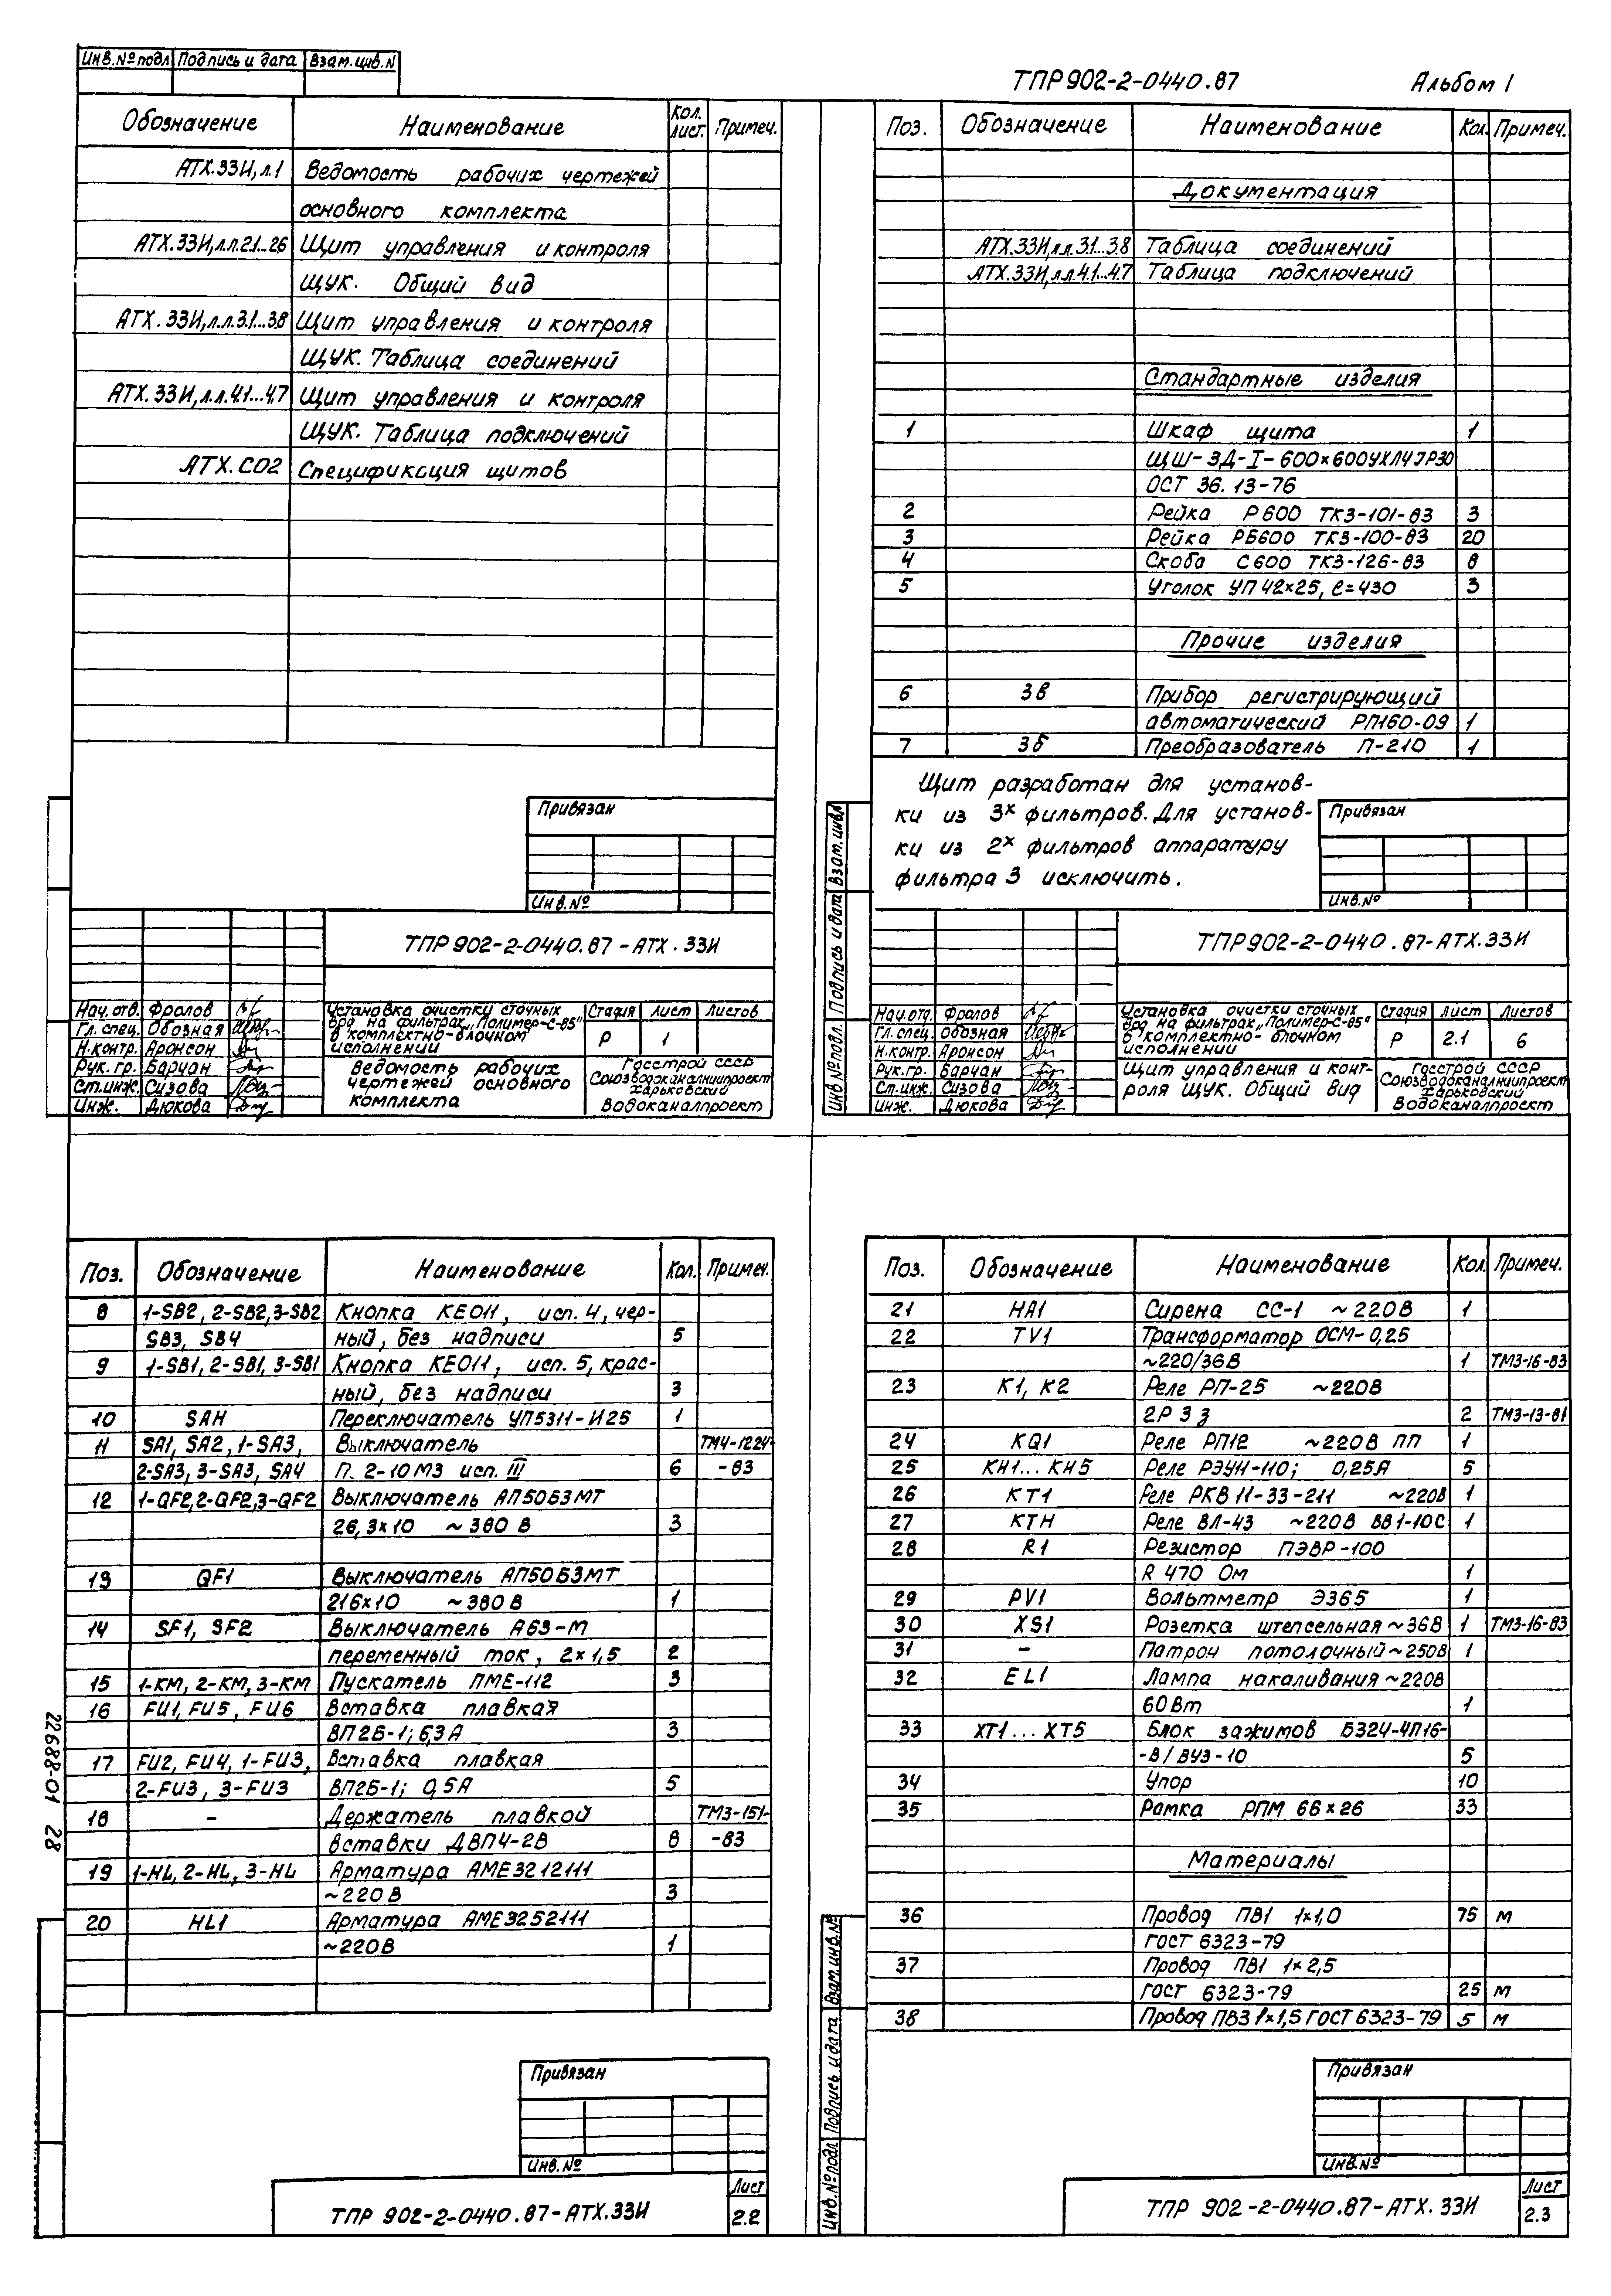 Инв.№подл Подпись и дата Взам.инв.N
ТПР 902-2-0440.87 Альбом I
Обозначение Наименование Кол. лист. Примеч.
АТХ.ЗЗИ, л.1 Ведомость рабочих чертежей
основного комплекта
АТХ.ЗЗИ, л.л.2.1...2.6 Щит управления и контроля
ЩУК. Общий вид
АТХ.ЗЗИ, л.л.3.1...3.8 Щит управления и контроля
ЩУК. Таблица соединений
АТХ.ЗЗИ, л.л.4.1...4.7 Щит управления и контроля
ЩУК. Таблица подключений
АТХ.СО2 Спецификация щитов
Привязан
Инв.№
ТПР 902-2-0440.87-АТХ.ЗЗИ
Нач.отв. Фролов
Гл.спец. Обозная
Н.контр. Аронсон
Рук.гр. Барчан
Ст.инж. Сизова
Инж. Дюкова
Установка очистки сточных
вод на фильтрах „Полимер-С-85"
в комплектно-блочном
исполнении
Стадия Лист Листов
Р 1
Ведомость рабочих
чертежей основного
комплекта
Госстрой СССР
Союзводоканалниипроект
Харьковский
Водоканалпроект
Поз. Обозначение Наименование Кол. Примеч.
Документация
АТХ.ЗЗИ, л.л.3.1...3.8 Таблица соединений
АТХ.ЗЗИ, л.л.4.1...4.7 Таблица подключений
Стандартные изделия
1 Шкаф щита 1
ЩШ-ЗД-I-600×600УХЛ4 IP30
ОСТ 36.13-76
2 Рейка Р600 ТК3-101-83 3
3 Рейка РБ600 ТК3-100-83 20
4 Скоба С600 ТК3-126-83 8
5 Уголок УП 42×25, ℓ=430 3
Прочие изделия
6 3в Прибор регистрирующий
автоматический РП160-09 1
7 3б Преобразователь П-210 1
Щит разработан для установ-
ки из 3х фильтров. Для установ-
ки из 2х фильтров аппаратуру
фильтра 3 исключить.
Привязан
Инв.№
Инв.№подл. Подпись и дата Взам.инв.№
ТПР 902-2-0440.87-АТХ.ЗЗИ
Нач.отд. Фролов
Гл.спец. Обозная
Н.контр. Аронсон
Рук.гр. Барчан
Ст.инж. Сизова
Инж. Дюкова
Установка очистки сточных
вод на фильтрах „Полимер-С-85"
в комплектно-блочном
исполнении
Стадия Лист Листов
Р 2.1 6
Щит управления и конт-
роля ЩУК. Общий вид
Госстрой СССР
Союзводоканалниипроект
Харьковский
Водоканалпроект
Поз. Обозначение Наименование Кол. Примеч.
8 1-SB2, 2-SB2, 3-SB2 Кнопка КЕ011, исп. 4, чер-
SB3, SB4 ный, без надписи 5
9 1-SB1, 2-SB1, 3-SB1 Кнопка КЕ011, исп. 5, крас-
ный, без надписи 3
10 SAH Переключатель УП5311-И25 1
11 SA1, SA2, 1-SA3, Выключатель ТМ4-1224-
2-SA3, 3-SA3, SA4 П. 2-10М3 исп. III 6 -83
12 1-QF2, 2-QF2, 3-QF2 Выключатель АП50Б3МТ
26,3×10 ~380 В 3
13 QF1 Выключатель АП50Б3МТ
216×10 ~380 В 1
14 SF1, SF2 Выключатель А63-М
переменный ток, 2×1,5 2
15 1-КМ, 2-КМ, 3-КМ Пускатель ПМЕ-112 3
16 FU1, FU5, FU6 Вставка плавкая
ВП2Б-1; 6,3А 3
17 FU2, FU4, 1-FU3, Вставка плавкая
2-FU3, 3-FU3 ВП2Б-1; 0,5А 5
18 - Держатель плавкой ТМ3-151-
вставки ДВП4-2В 8 -83
19 1-HL, 2-HL, 3-HL Арматура АМЕ3212111
~220 В 3
20 HL1 Арматура АМЕ3252111
~220В 1
22688-01 28
Привязан
Инв.№
ТПР 902-2-0440.87-АТХ.ЗЗИ
Лист
2.2
Поз. Обозначение Наименование Кол. Примеч.
21 НА1 Сирена СС-1 ~220В 1
22 TV1 Трансформатор ОСМ-0,25
~220/36В 1 ТМ3-16-83
23 К1, К2 Реле РП-25 ~220В
2Р 3 з 2 ТМ3-13-81
24 KQ1 Реле РП12 ~220В ПП 1
25 КН1...КН5 Реле РЭУ11-110; 0,25А 5
26 КТ1 Реле РКВ 11-33-211 ~220В 1
27 КТН Реле ВЛ-43 ~220В ВВ1-10С 1
28 R1 Резистор ПЭВР-100
R 470 Ом 1
29 PV1 Вольтметр Э365 1
30 XS1 Розетка штепсельная ~36В 1 ТМ3-16-83
31 - Патрон потолочный ~250В 1
32 EL1 Лампа накаливания ~220В
60Вт 1
33 ХТ1...ХТ5 Блок зажимов БЗ24-4П16-
-В/ВУЗ-10 5
34 Упор 10
35 Рамка РПМ 66×26 33
Материалы
36 Провод ПВ1 1×1,0 75 м
ГОСТ 6323-79
37 Провод ПВ1 1×2,5
ГОСТ 6323-79 25 м
38 Провод ПВ3 1×1,5 ГОСТ 6323-79 5 м
Инв.№подл. Подпись и дата Взам.инв.№
Привязан
Инв.№
ТПР 902-2-0440.87-АТХ.ЗЗИ
Лист
2.3